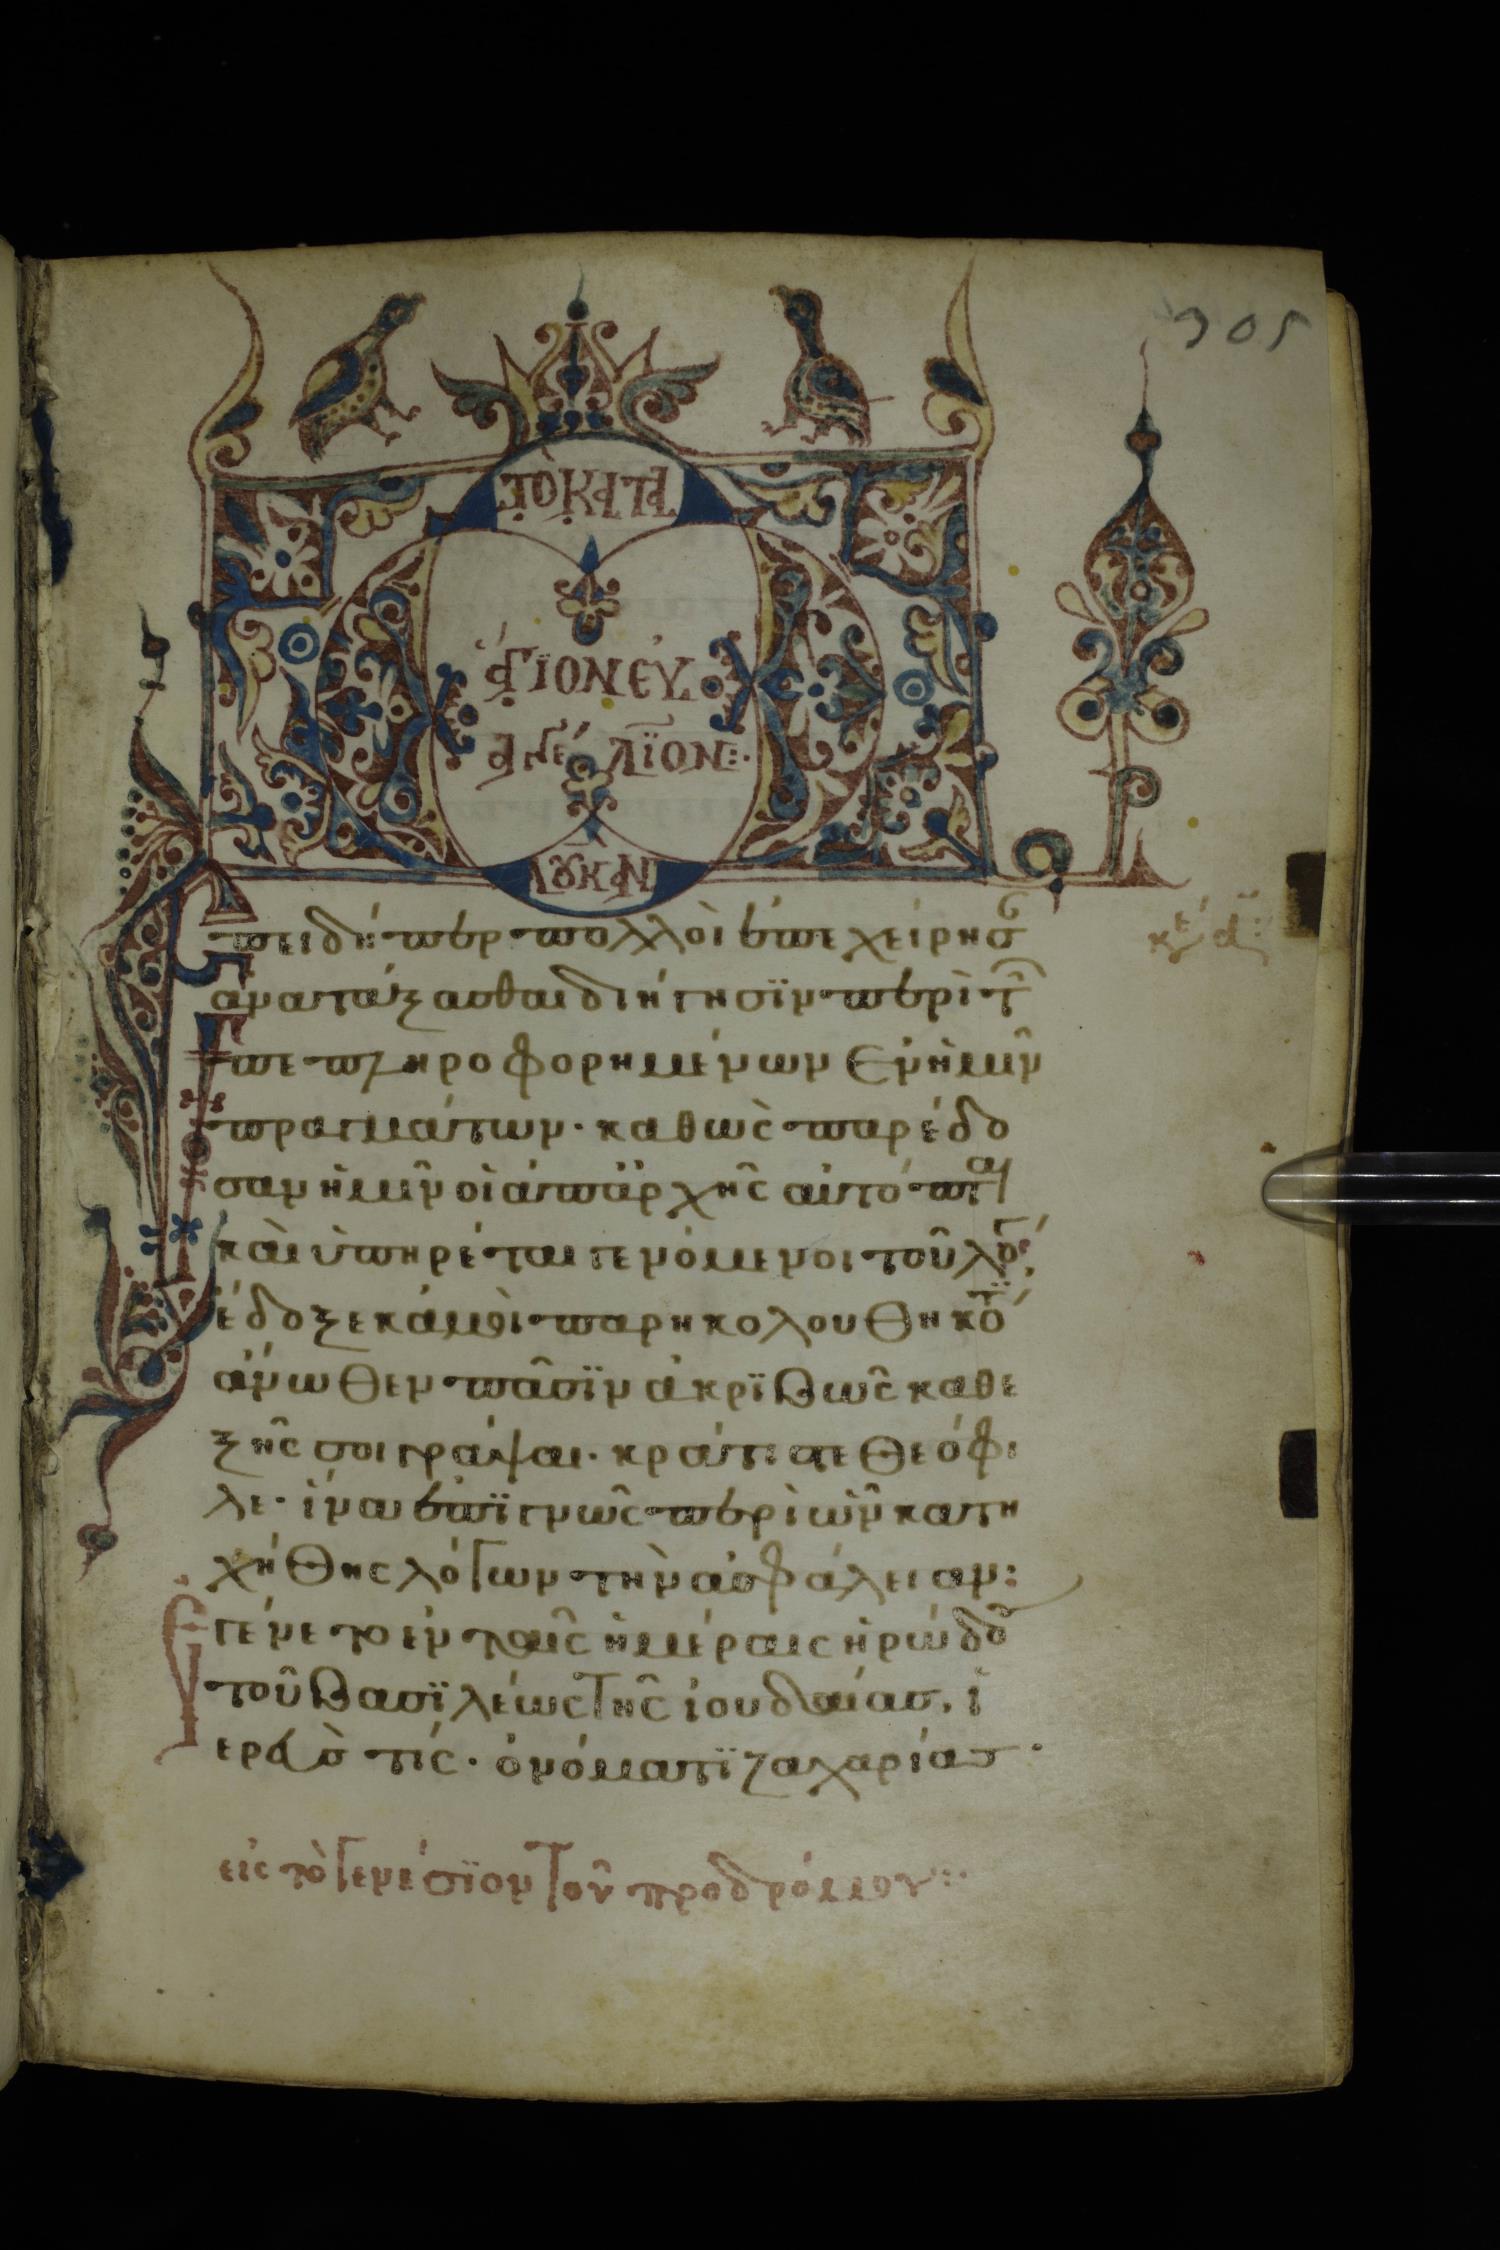 305
τὸ κατὰ
ἅγϊον εὐ
αγγέλϊον:·
λουκᾶν
Ἐπειδήπερ πολλοὶ ἐπεχείρησ
ἀνατάξασθαι διήγησϊν περὶ τ
πεπληροφορημένων ἐν ἡμῖν
πραγμάτων· καθὼς παρέδο
σαν ἡμῖν οἱ ἀπ' ἀρχῆς αὐτόπται
καὶ ὑπηρέται γενόμενοι τοῦ λόγ
ἔδοξε κἀμοὶ παρηκολουθηκότϊ
ἄνωθεν πᾶσϊν ἀκρϊβῶς καθε
ξῆς σοι γράψαι· κράτιστε Θεόφι
λε· ἵνα ἐπϊγνῶς περὶ ὧν κατη
χήθης λόγων τὴν ἀσφάλειαν:
Ἐγένετο ἐν ταῖς ἡμέραις ἡρώδου
τοῦ βασϊλέως τῆς ἰουδαίας, ἱ
ερεύς τίς· ὀνόματϊ ζαχαρίας·
εἰς τὸ γενέσϊον τοῦ προδρόμου:·